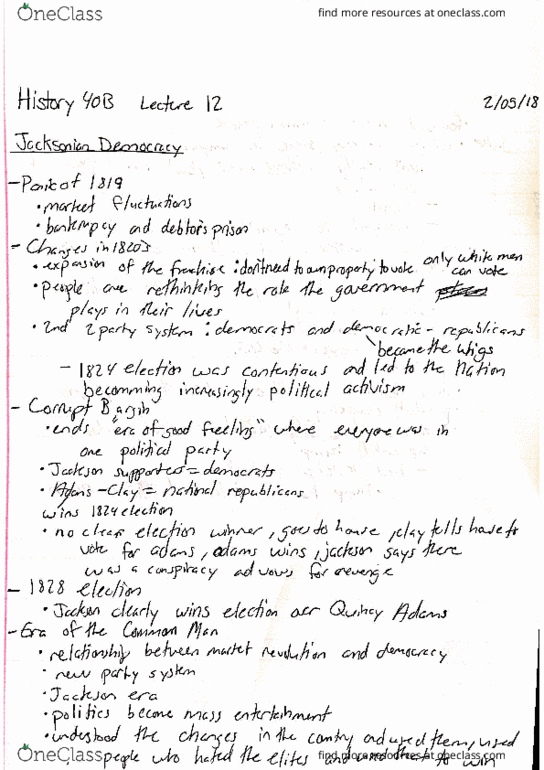 OneClass
find more resources at oneclass.com
History 40B Lecture 12 2/05/18
Jacksonian Democracy
- Panic of 1819
• market fluctuations
• bankrupcy and debtors prison
- Changes in 1820's
• expansion of the franchise : don't need to own property to vote only white men can vote
• people are rethinking the role the government
plays in their lives
• 2nd 2 party system : democrats and democratic - republicans
became the whigs
- 1824 election was contentious and led to the Nation
becomming increasingly political activism
- Corrupt Bargin
• ends "era of good feeling" where everyone was in
one political party
• Jackson supporters = democrats
• Adams - Clay = national republicans
wins 1824 election
• no clear election winner, goes to house, clay tells house to
vote for adams, adams wins, jackson says there
was a conspiracy ad vows for revenge
- 1828 election
• Jackson clearly wins election over Quincy Adams
- Era of the Common Man
• relationship between market revolution and democracy
• new party system
• Jackson era
• politics become mass entertainment
• undestood the changes in the country and used them, used
people who hated the elites and used them to win
OneClass
find more resources at oneclass.com